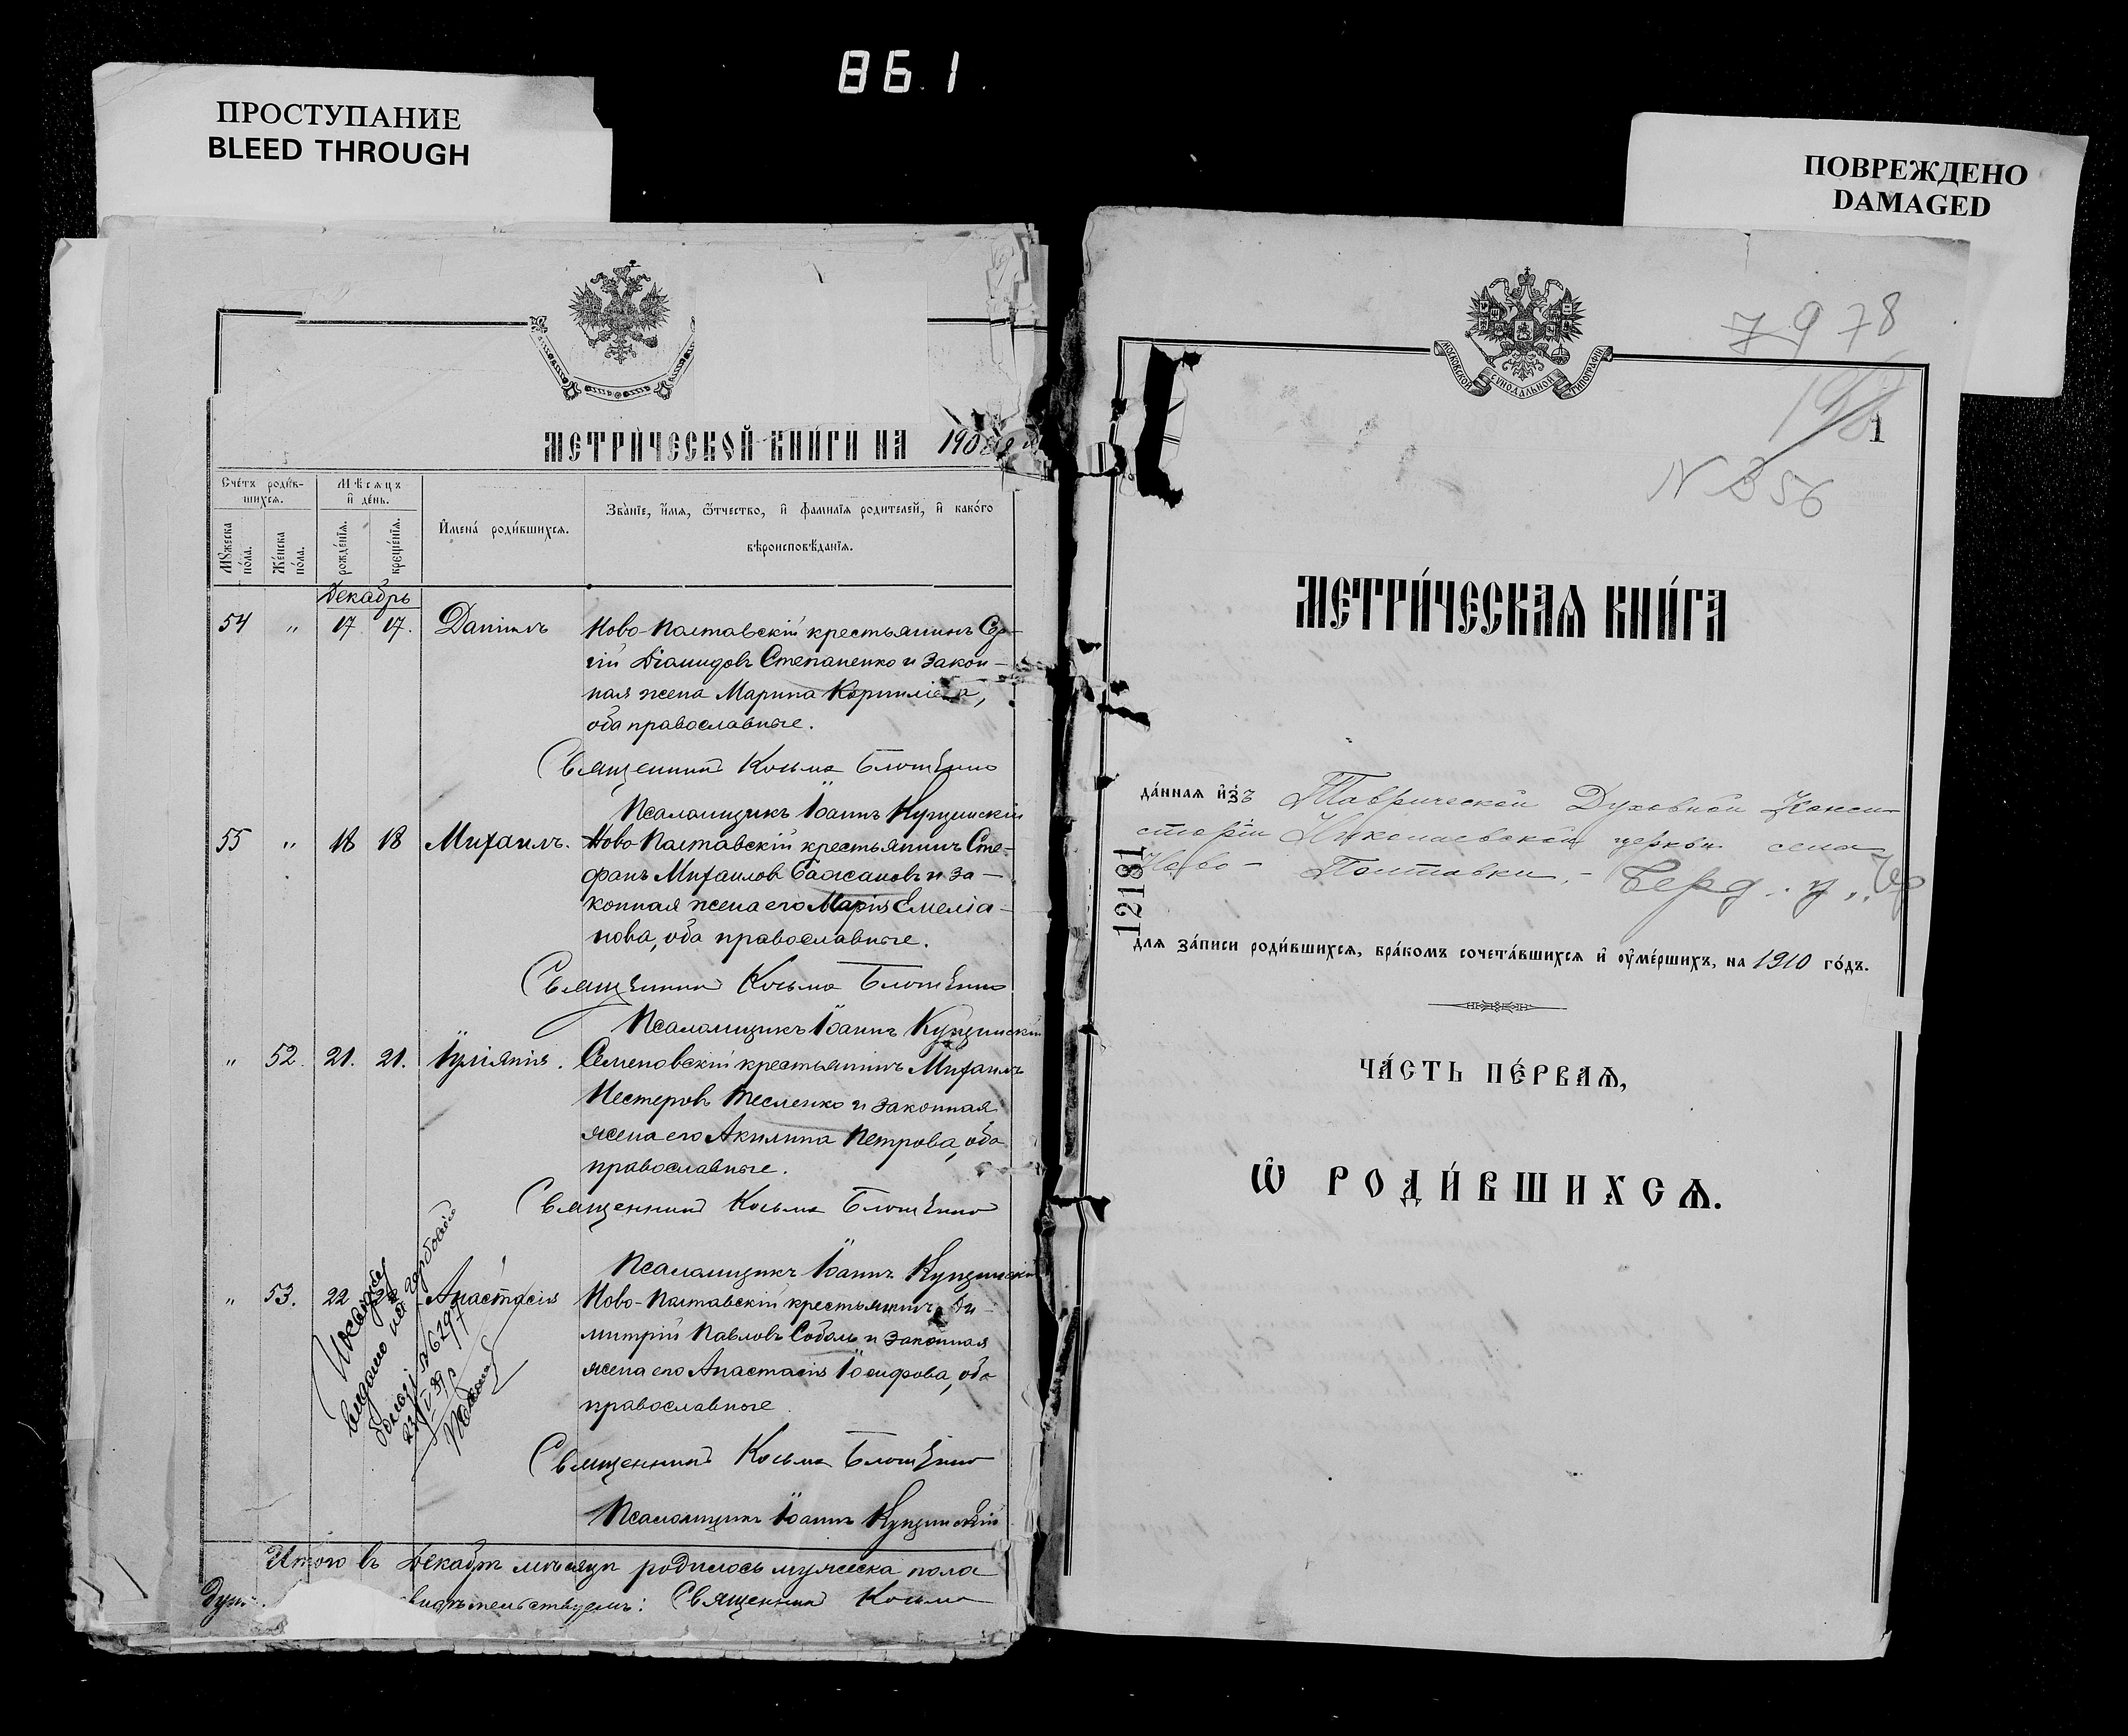 86.1
ПРОСТУПАНИЕ
BLEED THROUGH
ПОВРЕЖДЕНО
DAMAGED
МЕТРИ́ЧЕСКОЙ КНИ́ГИ НА 190
Сче́тъ роди́в-
шихсѧ.
Мѣ́сяцъ
и҆ де́нь.
Мꙋ́жеска
по́ла.
Же́нска
по́ла.
рожде́нїѧ.
креще́нїѧ.
И҆мена̀ роди́вшихсѧ.
Зва́нїе, и҆́мѧ, ѻ҆́тчество, и҆ фами́лїѧ роди́телей, и҆ како́го
вѣроисповѣ́данїѧ.
Декабрь
54 " 17 17. Данiилъ Ново-Полтавскій крестьянинъ Сер-
гій Діамидовъ Степаненко и закон-
ная жена Марина
оба православные.
Священник Косьма
Псаломщикъ Іоаннъ
55 " 18 18 Михаилъ. Ново-Полтавскій крестьянинъ Сте-
фанъ Михаилов Бажановъ и за-
конная жена его Марія Емеліа-
нова, оба православные.
Священник Косьма
Псаломщикъ Іоаннъ
" 52. 21. 21. Іуліанія. Семеновскій крестьянинъ Михаилъ
Нестеровъ Тесленко и законная
жена его Акилина Петрова, оба
православные.
Священник Косьма
Псаломщикъ Іоаннъ
" 53. 22 Анастасія Ново-Полтавскій крестьянинъ Ди-
митрій Павловъ Соболь и законная
жена его Анастасія Іосифова, оба
православные
Священник Косьма
Псаломщикъ Іоаннъ
Итого въ Декабрѣ мѣсяцѣ родилось мужеска пола
Священник Косьма
7978
1
N 356
МОСКОВСКОЙ СѴНОДАЛЬНОЙ ТИПОГРАФІИ
МЕТРИ́ЧЕСКАѦ КНИ́ГА
да́ннаѧ и҆з̾ Таврической Духовной Конси-
сторіи Николаевской церкви села
Ново-Полтавки,- Берд. у.
12181
длѧ за́писи роди́вшихсѧ, бра́комъ сочета́вшихсѧ и҆ ᲂу҆ме́ршихъ, на 1910 го́дъ.
ЧА́СТЬ ПЕ́РВАѦ,
Ѡ҆ РОДИ́ВШИХСѦ.